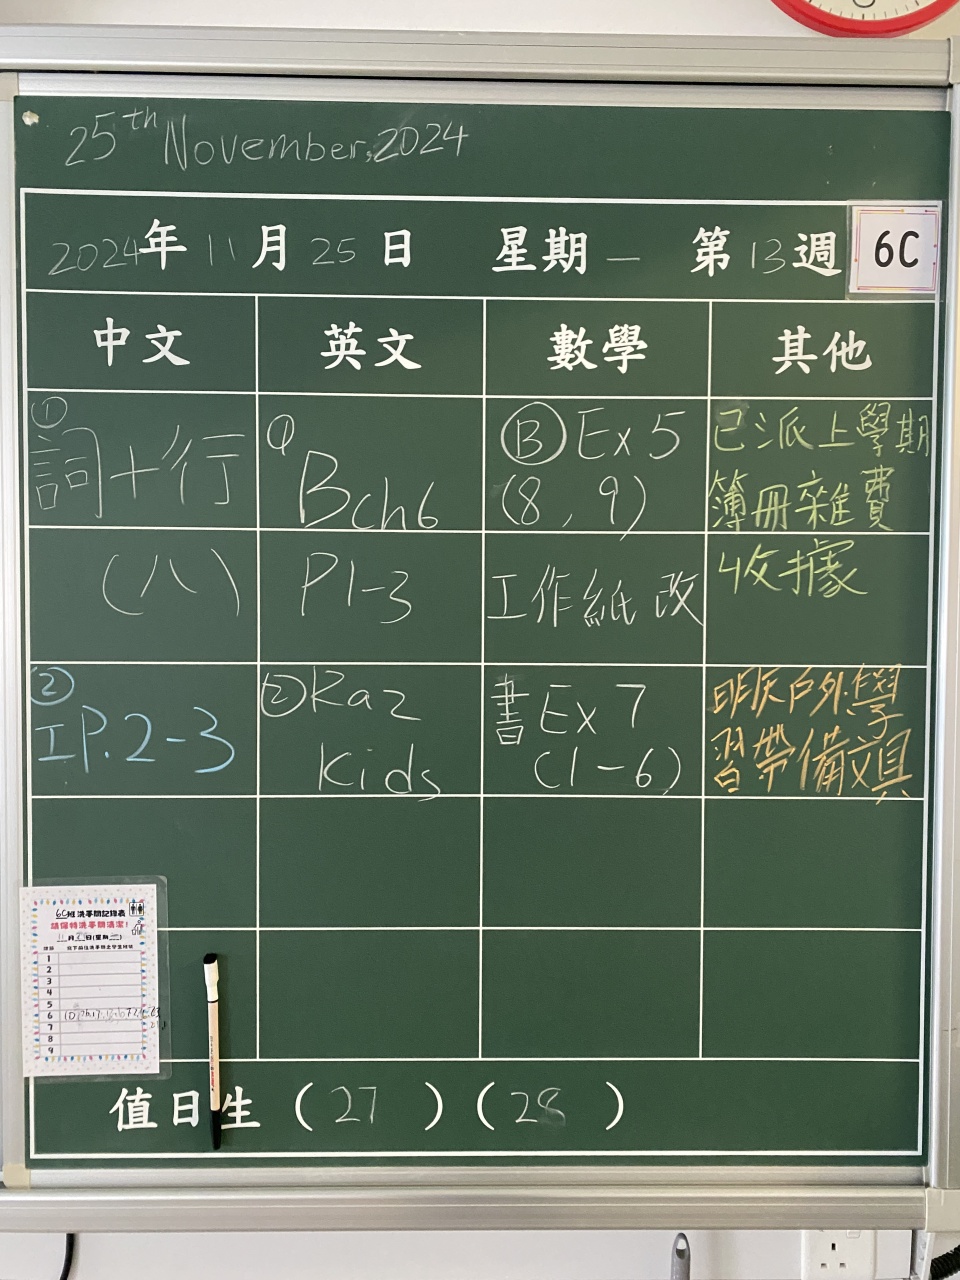 25th November, 2024
2024年11月25日 星期一 第13週 6C
中文 英文 數學 其他
① 詞十行 ① Bch6 Ⓑ Ex 5 已派上學期
(8, 9) 簿冊雜費
(八) P1-3 工作紙 改 收據
② 工P.2-3 ② Raz 書 Ex 7 明天戶外學
Kids (1-6) 習帶備文具
6C班洗手間記錄表
請保持洗手間清潔!
1
2
3
4
5
6
7
8
9
值日生 (27) (28)